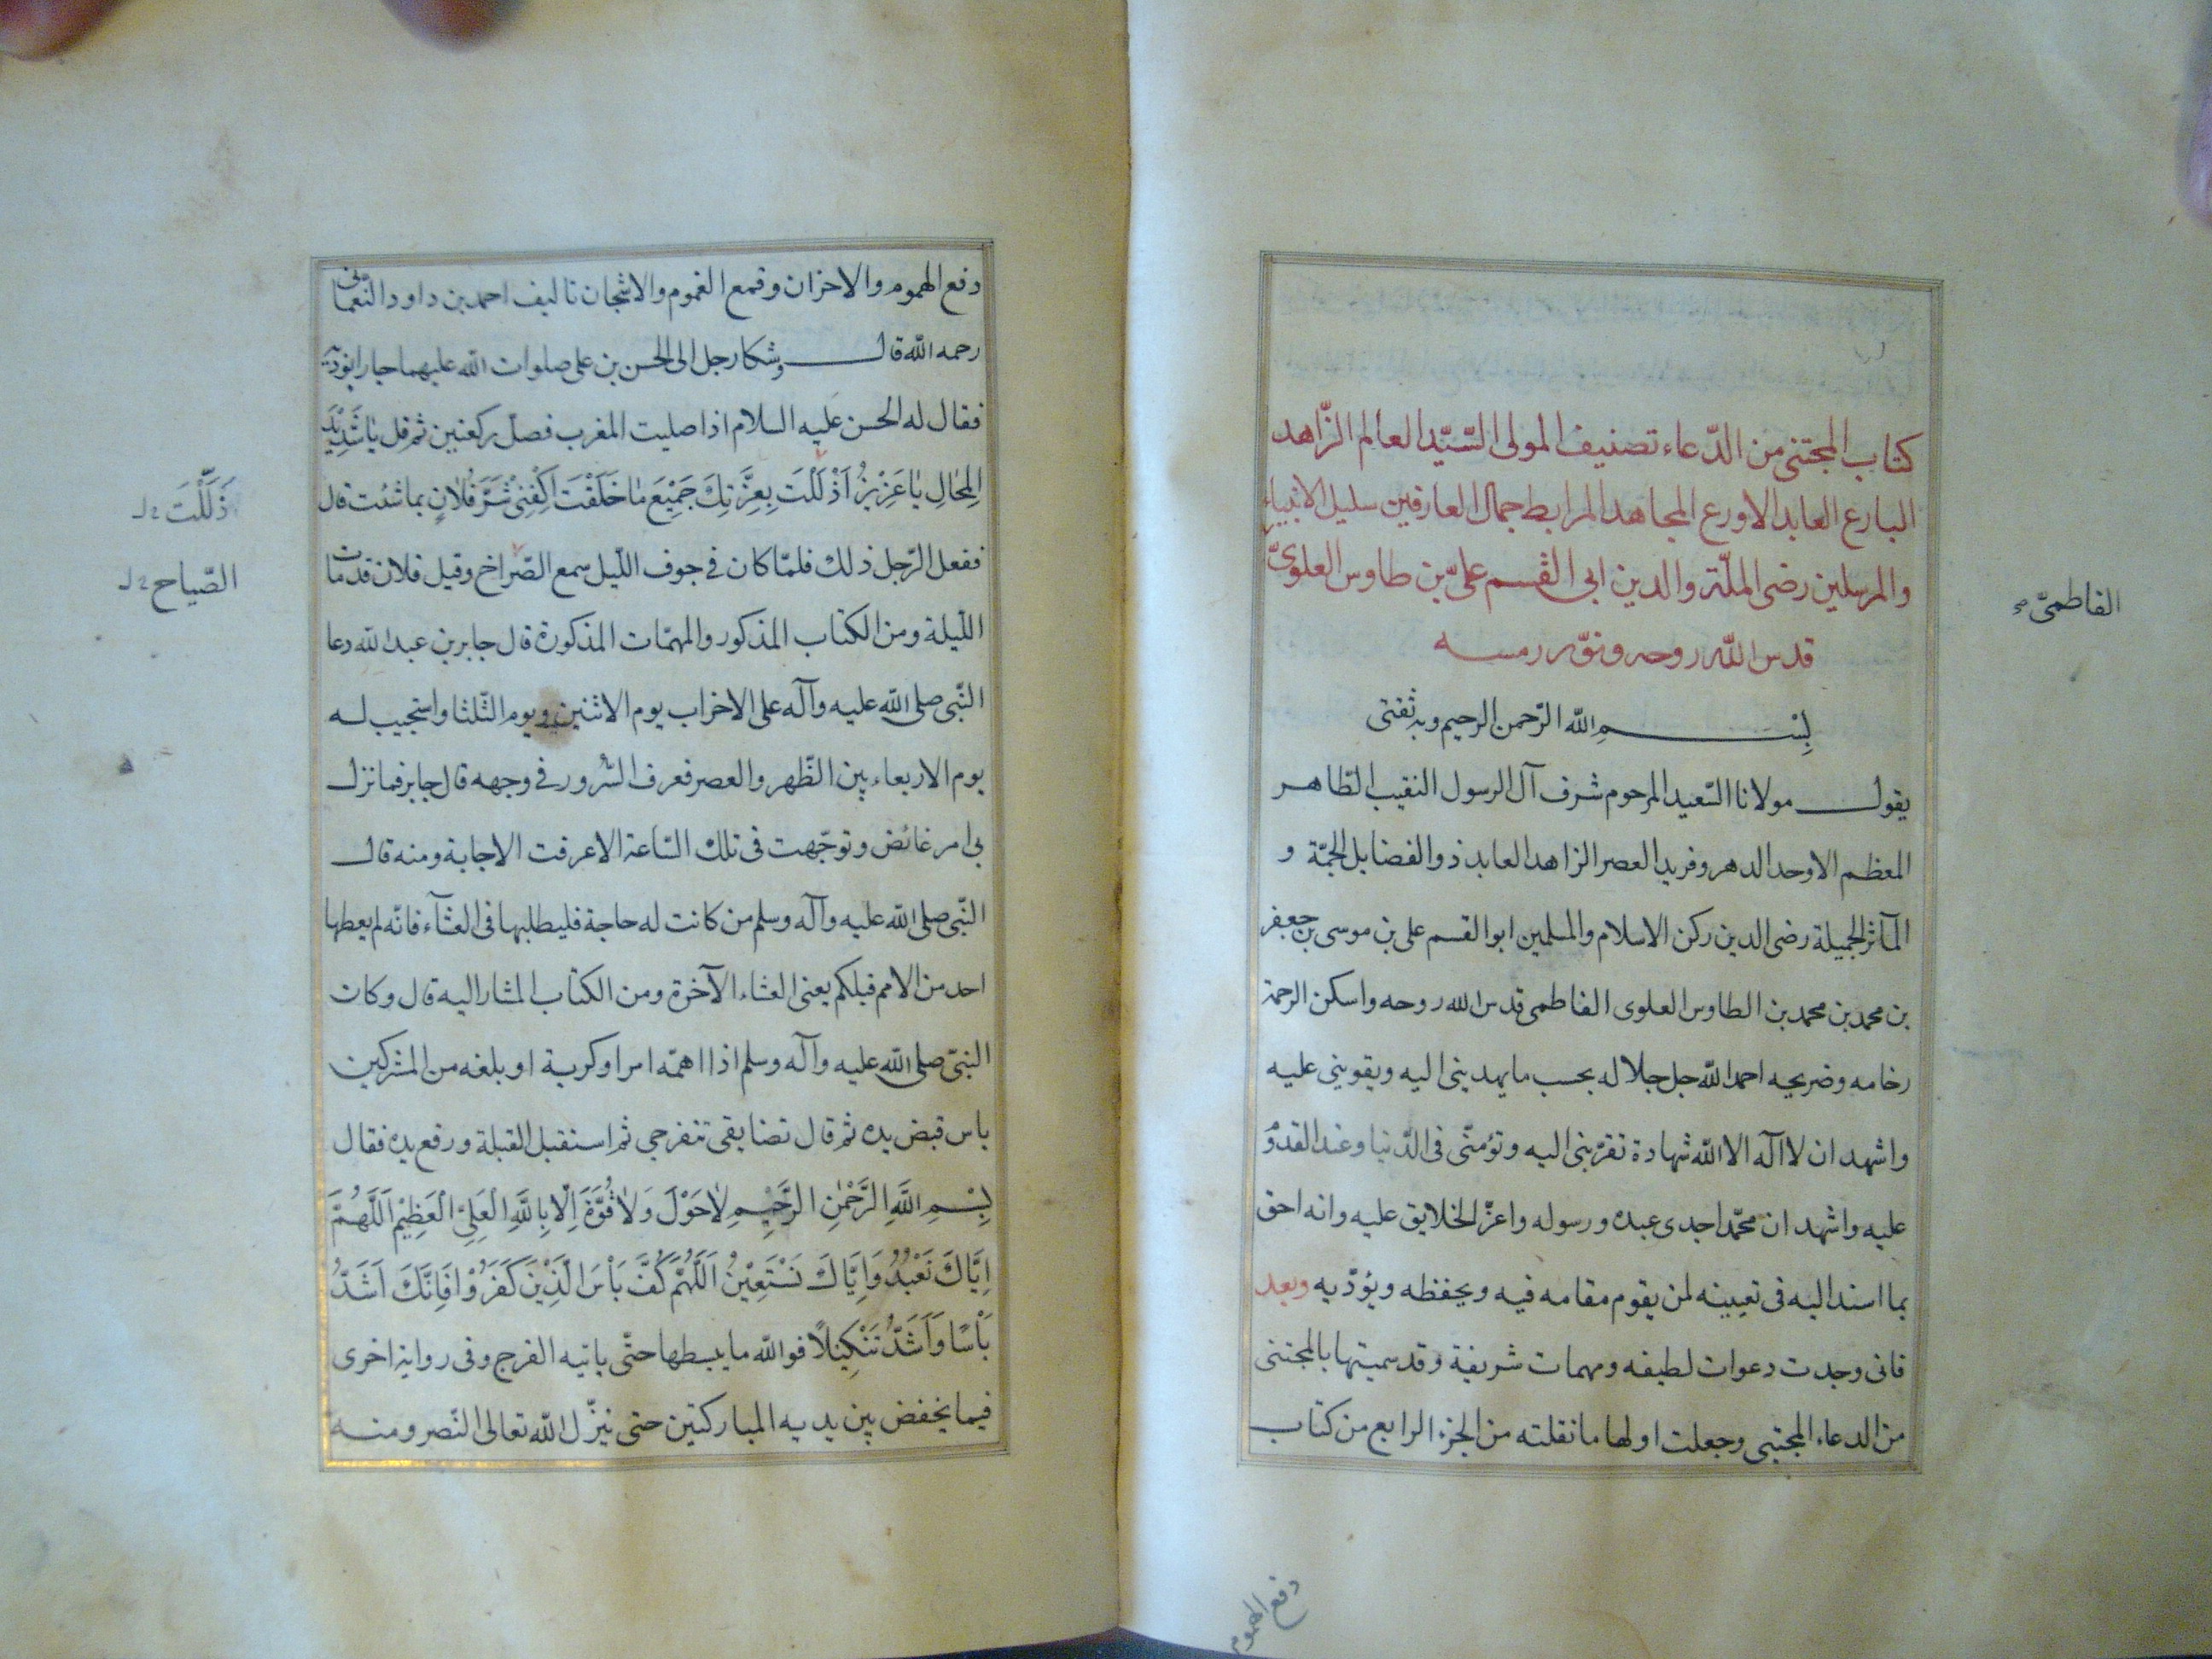 كتاب المجتنى من الدّعاء تصنيف المولى السّيّد العالم الزّاهد
البارع العابد الاورع المجاهد المرابط جمال العارفين سليل الانبياء
والمرسلين رضى الملّة والدين ابى القسم علىّ بن طاوس العلوىّ
الفاطمىّ صح
قدس اللّه روحه ونوّر رمسه
بِسْمِ اللّه الرّحمن الرحيم وبه ثقتى
يقول مولانا السّعيد المرحوم شرف آل الرسول النقيب الطّاهر
المعظم الاوحد الدهر وفريد العصر الزاهد العابد ذو الفضايل الجمّة و
المآثر الجميلة رضى الدين ركن الاسلام والمسلمين ابو القسم على بن موسى بن جعفر
بن محمد بن محمد بن الطاوس العلوى الفاطمى قدس الله روحه واسكن الرحمة
رخامه وضريحه احمد اللّه جل جلاله بحسب ما يهدينى اليه ويقوينى عليه
واشهد ان لا اله الا اللّه شهادة تقرّبنى اليه وتؤمنّى فى الدّنيا وعند القدوم
عليه واشهد ان محمّدا جدى عبده ورسوله واعزّ الخلايق عليه وانه احق
بما اسند اليه فى تعيينه لمن يقوم مقامه فيه ويحفظه ويؤدّيه وبعد
فانى وجدت دعوات لطيفه ومهمات شريفة وقد سميتها بالمجتنى
من الدعاء المجتبى وجعلت اولها ما نقلته من الجزء الرابع من كتاب
دفع الهموم
دفع الهموم والاحزان وقمع الغموم والاشجان تاليف احمد بن داود النّعمانى
رحمه اللّه قال وشكا رجل الى الحسن بن على صلوات اللّه عليهما جارا يؤذيه
فقال له الحسن عليه السلام اذا صليت المغرب فصلّ ركعتين ثم قل يٰا شَدِيْدَ
الْمِحٰالِ يٰا عَزِيْزُ اَذْلَلْتَ بِعِزَّتِكَ جَمِيْعَ مٰا خَلَقْتَ اِكْفِنِىْ شَرَّ فُلٰانٍ بما شئت قال
ذَلَّلْتَ خ ل
ففعل الرّجل ذلك فلمّا كان فى جوف اللّيل سمع الصّراخ وقيل فلان قد مات
الصّياح خ ل
اللّيلة ومن الكتاب المذكور والمهمّات المذكورة قال جابر بن عبد اللّه دعا
النّبى صلى اللّه عليه وآله على الاحزاب يوم الاثنين ويوم الثّلثا واستجيب له
يوم الاربعاء بين الظّهر والعصر فعرف السّرور فى وجهه قال جابر فما نزل
بى امر غائض وتوجّهت فى تلك السّاعة الا عرفت الاجابة ومنه قال
النّبى صلى اللّه عليه وآله وسلم من كانت له حاجة فليطلبها فى العشآء فانّه لم يعطها
احد من الامم قبلكم يعنى العشاء الآخرة ومن الكتاب المشار اليه قال وكان
النبىّ صلى اللّه عليه وآله وسلم اذا اهمّه امر او كربة او بلغه من المشركين
باس قبض يده ثم قال تضايقى تنفرجى ثم استقبل القبلة ورفع يده فقال
بِسْمِ اللَّهِ الرَّحْمٰنِ الرَّحِيْمِ لٰا حَوْلَ وَلٰا قُوَّةَ اِلّا بِاللَّهِ الْعَلِىِّ الْعَظِيْمِ اَللّٰهُمَّ
اِيَّاكَ نَعْبُدُ وَاِيَّاكَ نَسْتَعِيْنُ اَللّٰهُمَّ كُفَّ بَاْسَ الَّذِيْنَ كَفَرُوْا فَاِنَّكَ اَشَدُّ
بَاْسًا وَاَشَدُّ تَنْكِيْلًا فو اللّه ما يبسطها حتّى ياتيه الفرج وفى رواية اخرى
فيما يخفض بين يديه المباركتين حتى ينزّل اللّه تعالى النّصر ومنه